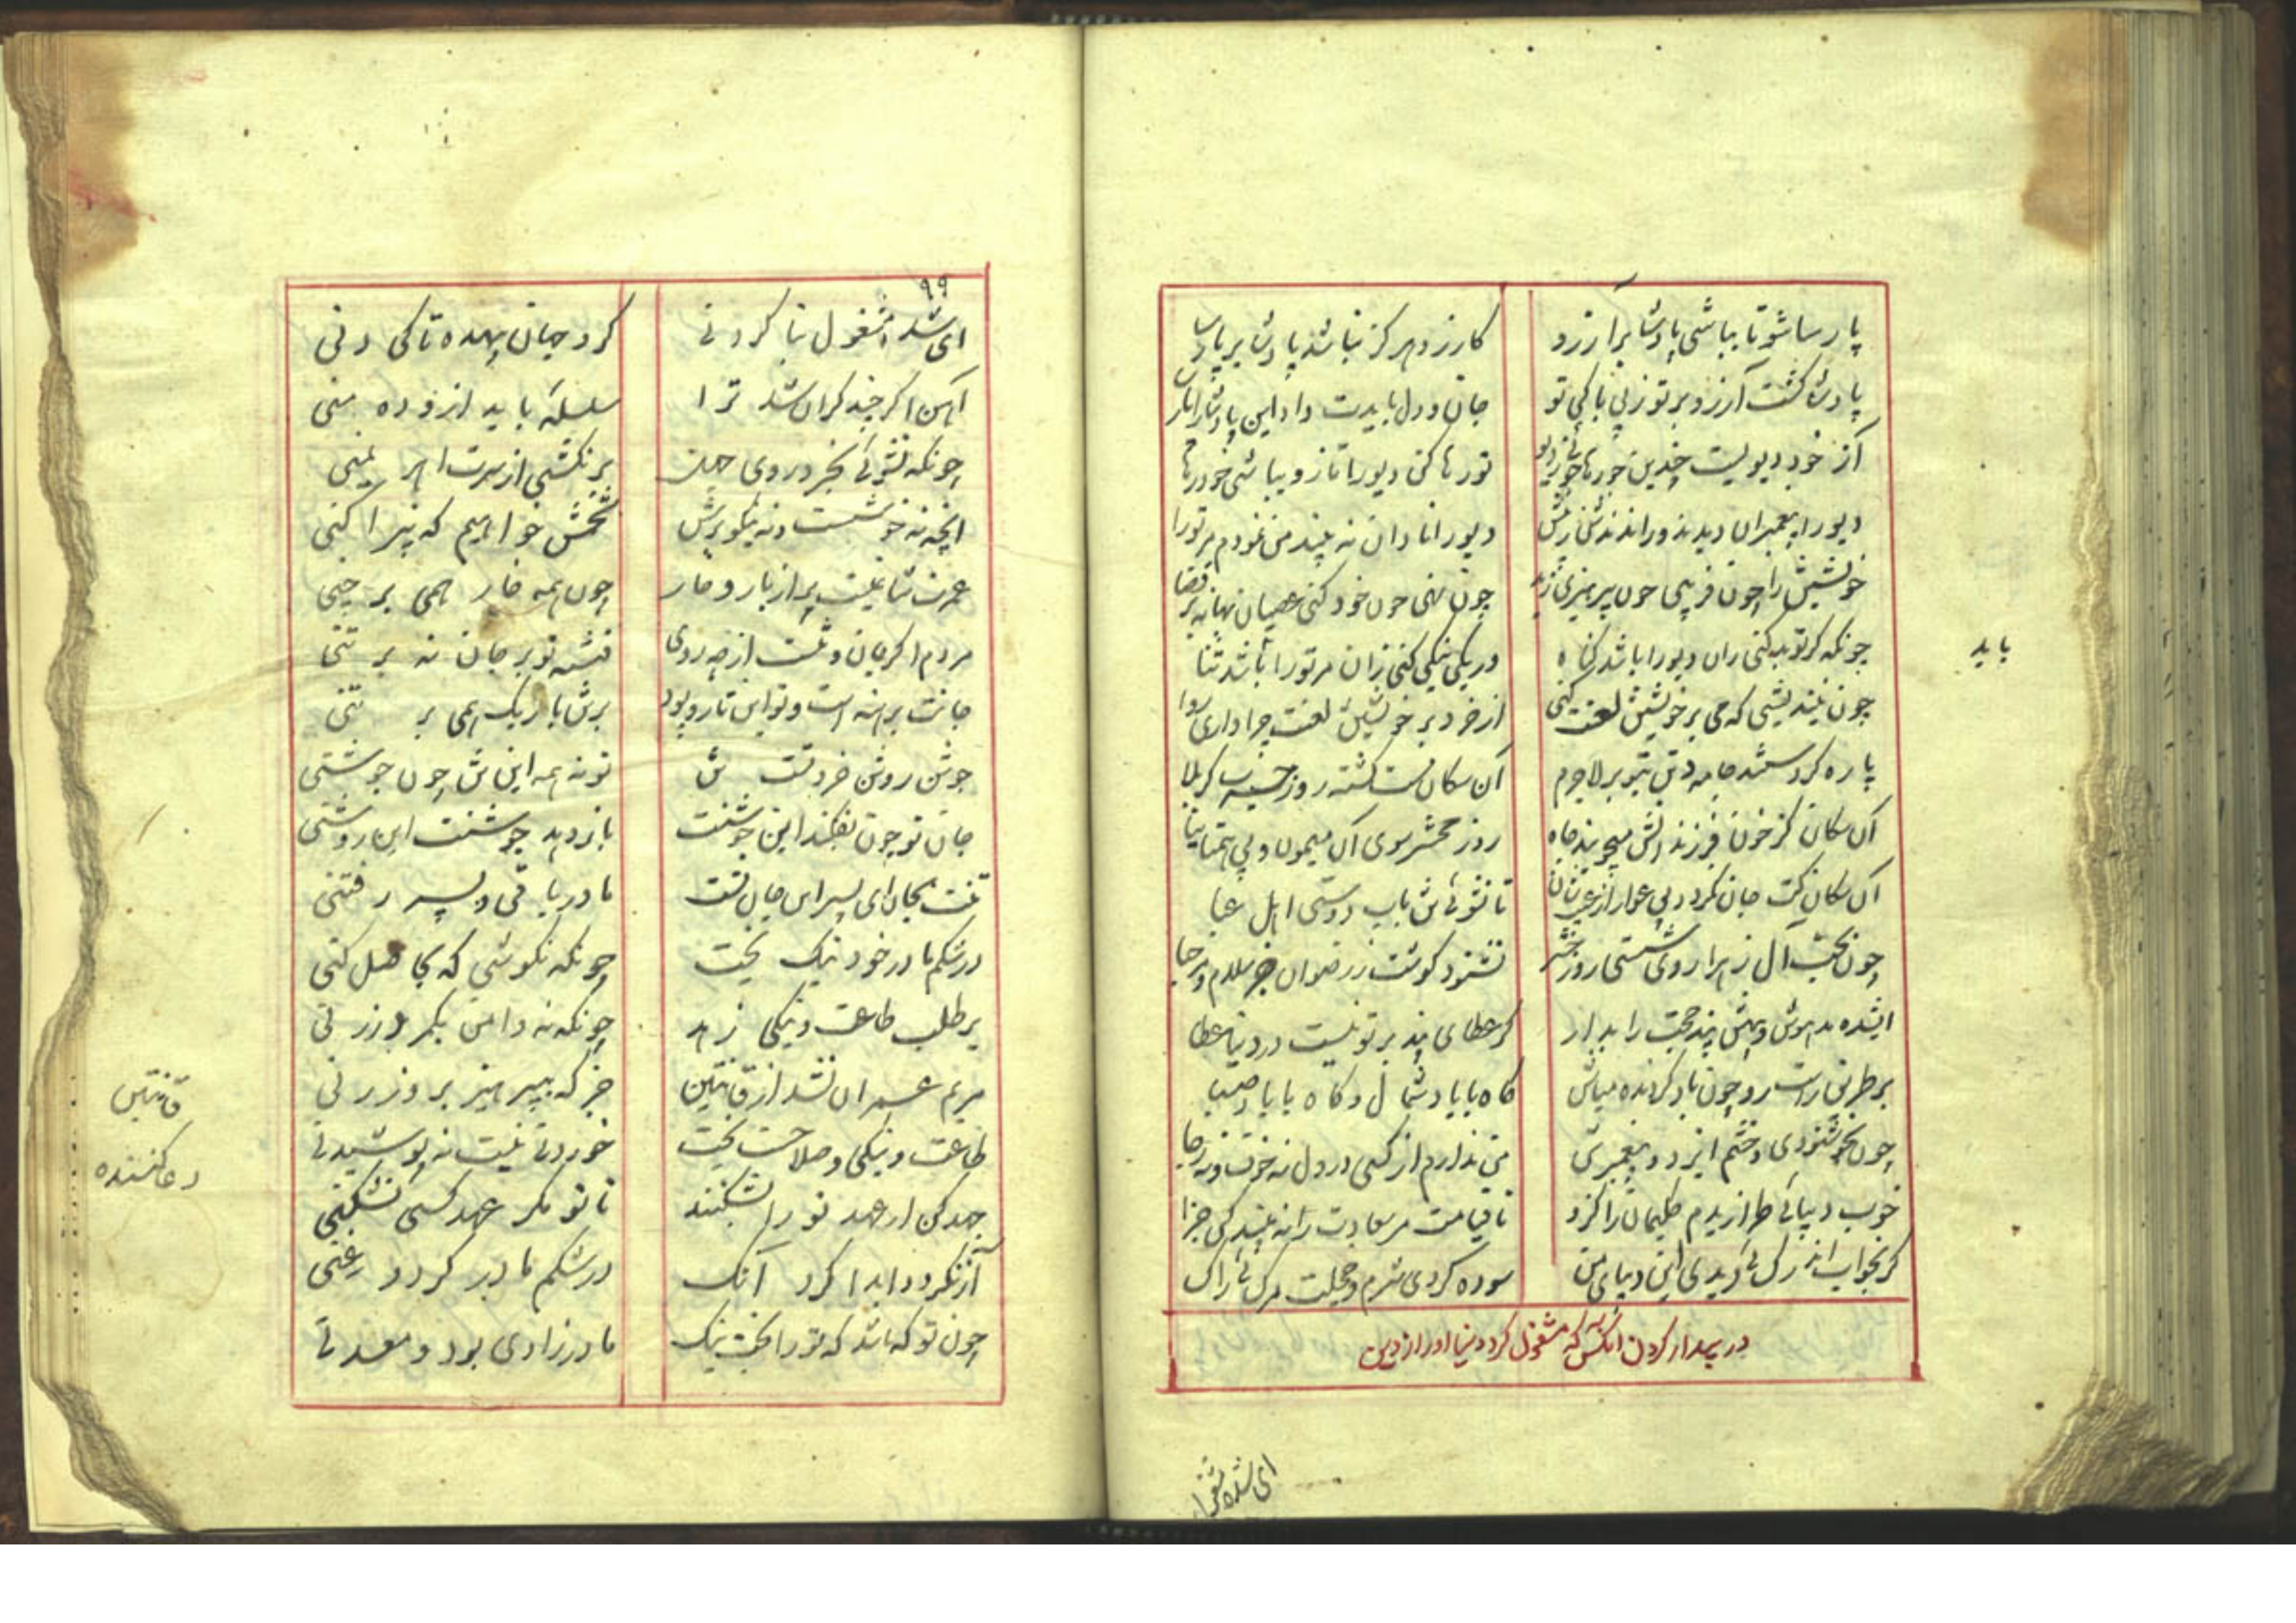 پارسا شو تا بباشی پادشا بر آرزو
کارزو هرگز نباشد پادشا بر پارسا
پادشا گشت آرزو بر تو ز بی باکی تو
جان و دل بایدت داد این پادشا را
از خود دیویست چندین
تو رها کن دیو را تا زو بباشی خود رها
دیو را پیغمبران دیدند و راندندش ز پیش
دیو را نادان نه بیند من نمودم مر تورا
خویشتن را چون فریبی چون نپرهیزی ز بد
چون نهی چون خود کنی عصیان بهانه بر قضا
چونکه گر تو بد کنی زان دیو را باشد گناه
ور یکی نیکی کنی زان مر تو را باشد ثنا
چون نیندیشی که می بر خویشتن لعنت کنی
از خرد بر خویشتن لعنت چرا داری روا
پاره کردستند جامه دین بتو بر لاجرم
آن سگان مست گشته روز حشر کربلا
آن سگان کز خون فرزندانش میجویند جاه
روز محشر سوی آن میمون و بی همتا نیا
آن سگان
تا نشوئی تن بآب دوستی اهل عبا
چون بحب آل زهرا روی شستی روز حشر
نشنود گوشت ز رضوان جز سلام و مرحبا
ای شده مدهوش و بیهش پند حجت را بدار
کز عطای پند برتر نیست در دنیا عطا
بر طریق راست رو چون باد گردنده مباش
گاه با باد شمال و گاه با باد صبا
چون بخوشنودی و خشم ایزد و پیغمبرش
من ندارم از کسی در دل نه خوف و نه رجا
خوب دیبائی طرازیدم حکیمان را کزو
تا قیامت مر سعادت را نه بیند کس جزا
گر بخواب اندر
سوده کردی شرم و خجلت
در بیدار کردن آنکس که مشغول کرد دنیا او را از دین
ای شده مشغول
باید
۹۹
ای شده مشغول بنا کردنی
گرد جهان بیهده تا کی دنی
آهن اگر چند گران شد ترا
سلسله باید از ده منی
چونکه نشوئی بخرد روی جهل
بر نکشی از سرت اهریمنی
آنچه نه خوشست و نه نیکو برش
تخمش خواهیم که نپراکنی
عمرت شاخیست پر از بار و خار
چون همه خار همی بر چنی
مردم اگر جان و تنست از چه روی
فتنه تو بر جان نه بر تنی
جانت برهنه است و تو این تار و پود
برتن باریک همی بر تنی
جوشن روشن خردت تن
تو نه همه این تن چون جوشنی
جان تو چون بفکند این جوشنت
باز دهد جوشنت این روشنی
تنت بجان ای پسر این جان تست
مادر باقی و پسر رفتنی
در شکم مادر خود نیک بخت
چونکه نکوشی که بحاصل کنی
بر طلب طاعت و نیکی زهد
چونکه نه دامن بکمر در زنی
مریم عمران نشد از قانتین
جز که بپرهیز بر و زرنی
طاعت و نیکی و صلاحست بخت
خوردنی نیست نه پوشیدنی
جهد کن ار عهد تو را بشکنند
تا تو مگر عهد کسی نشکنی
آز نگردد ابدا گرد آنک
در شکم مادر گردد غنی
چون تو که باشد که تو را بخت نیک
مادرزادی بود و معدنی
قانتین
دعا کننده